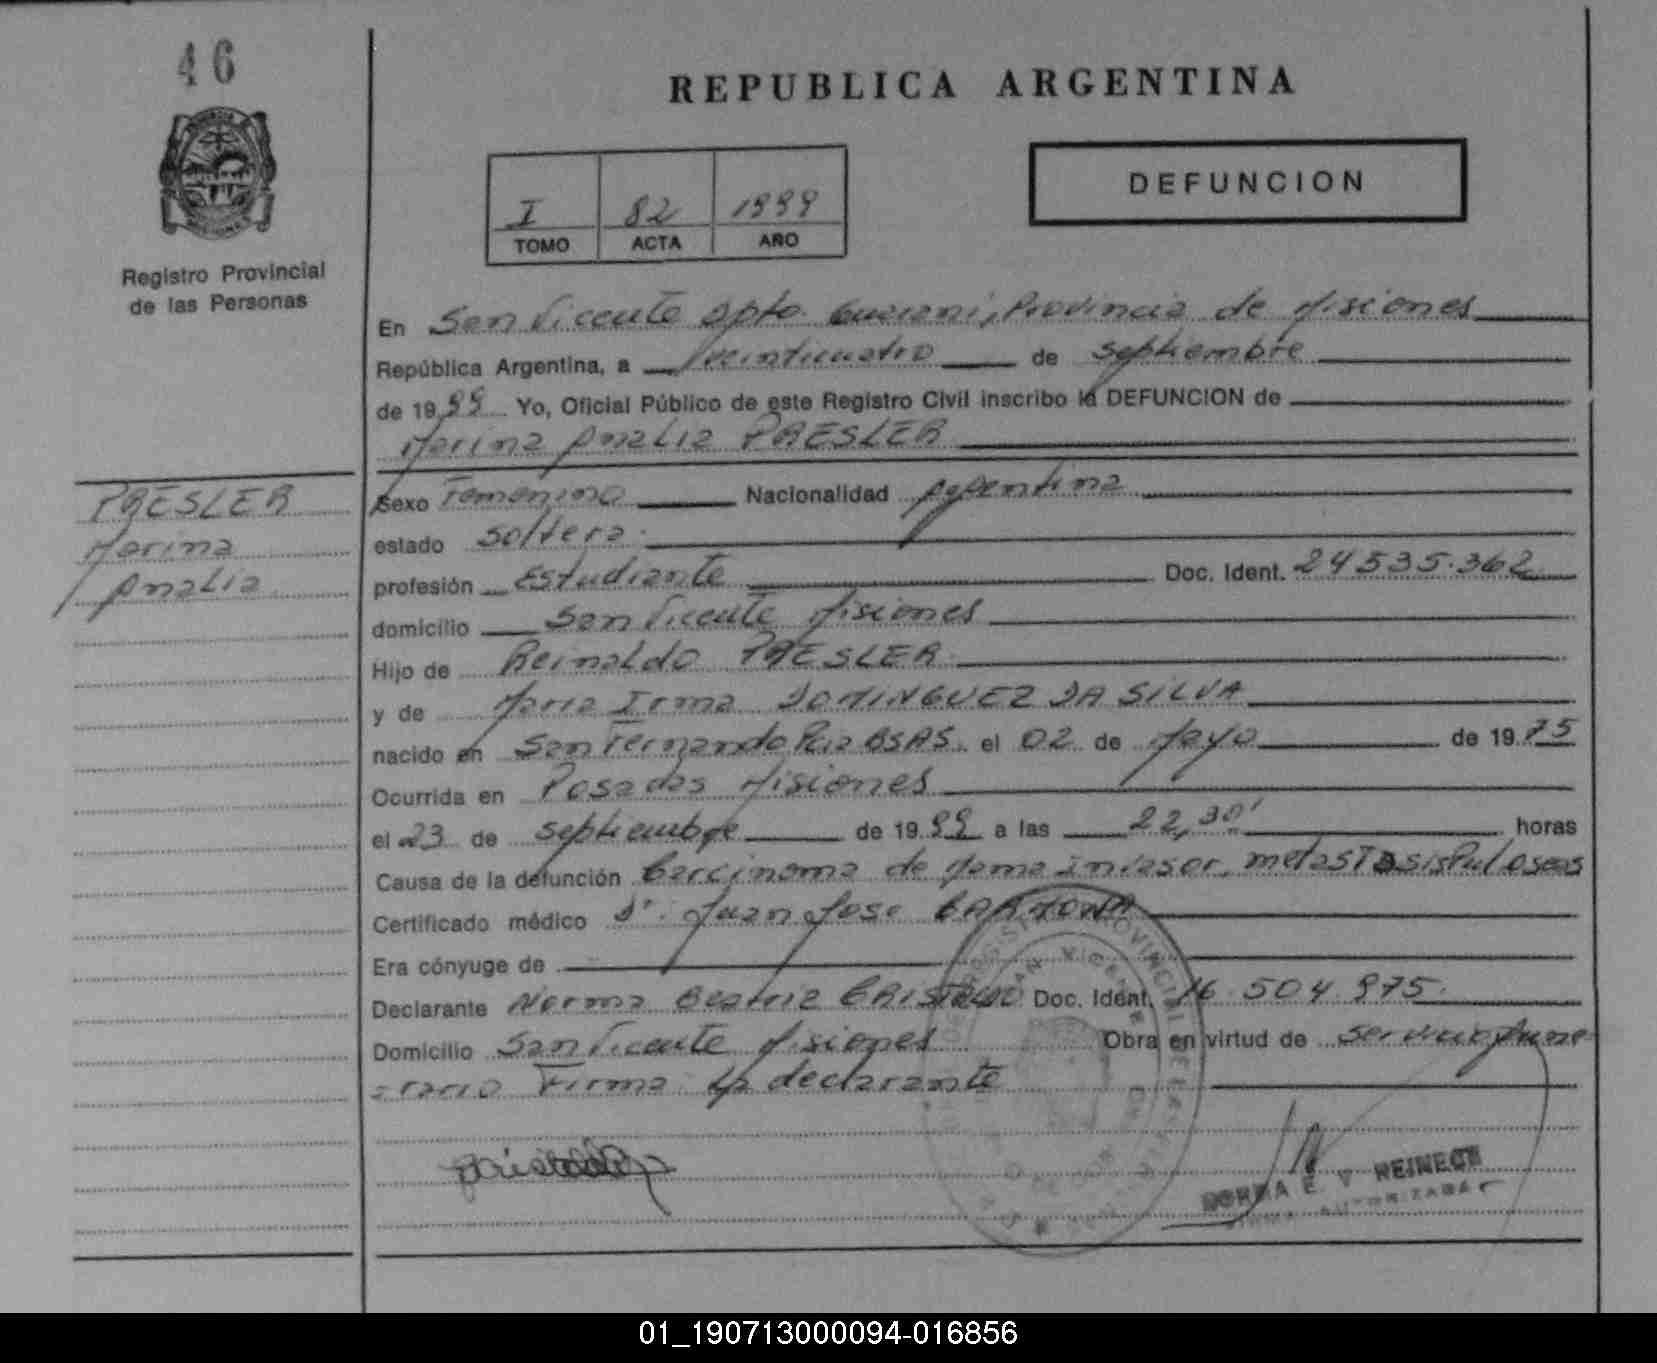 46
REPUBLICA ARGENTINA
DEFUNCION
I 82 1999
TOMO ACTA AÑO
Registro Provincial
de las Personas
En San Vicente Dpto. Guarani, Provincia de Misiones
República Argentina, a Veinticuatro de Septiembre
de 1999 Yo, Oficial Público de este Registro Civil inscribo la DEFUNCION de
Marina Analia PRESLER
PRESLER
Marina
Analia
Sexo Femenino Nacionalidad Argentina
estado Soltera.
profesión Estudiante Doc. Ident. 24535.362
domicilio San Vicente Misiones
Hijo de Reinaldo PRESLER
y de Maria Irma DOMINGUEZ DA SILVA
nacido en San Fernando Pcia BSAS. el 02 de Mayo de 1975
Ocurrida en Posadas Misiones
el 23 de septiembre de 1999 a las 22,30' horas
Causa de la defunción Carcinoma de Mama metastasis
Certificado médico Dr. Juan Jose
Era cónyuge de
Declarante Norma Beatriz Doc. Ident. 16.504.975.
Domicilio San Vicente Misiones Obra en virtud de Servicio Fune
-rario Firma la declarante
NORMA E. V. REINECK
FIRMA AUTORIZADA
01_190713000094-016856